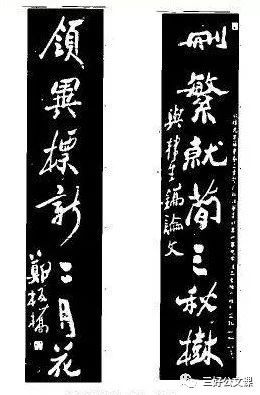 刪繁就簡三秋樹
與韓生鎬論文
領異標新二月花
鄭板橋
三好公文課